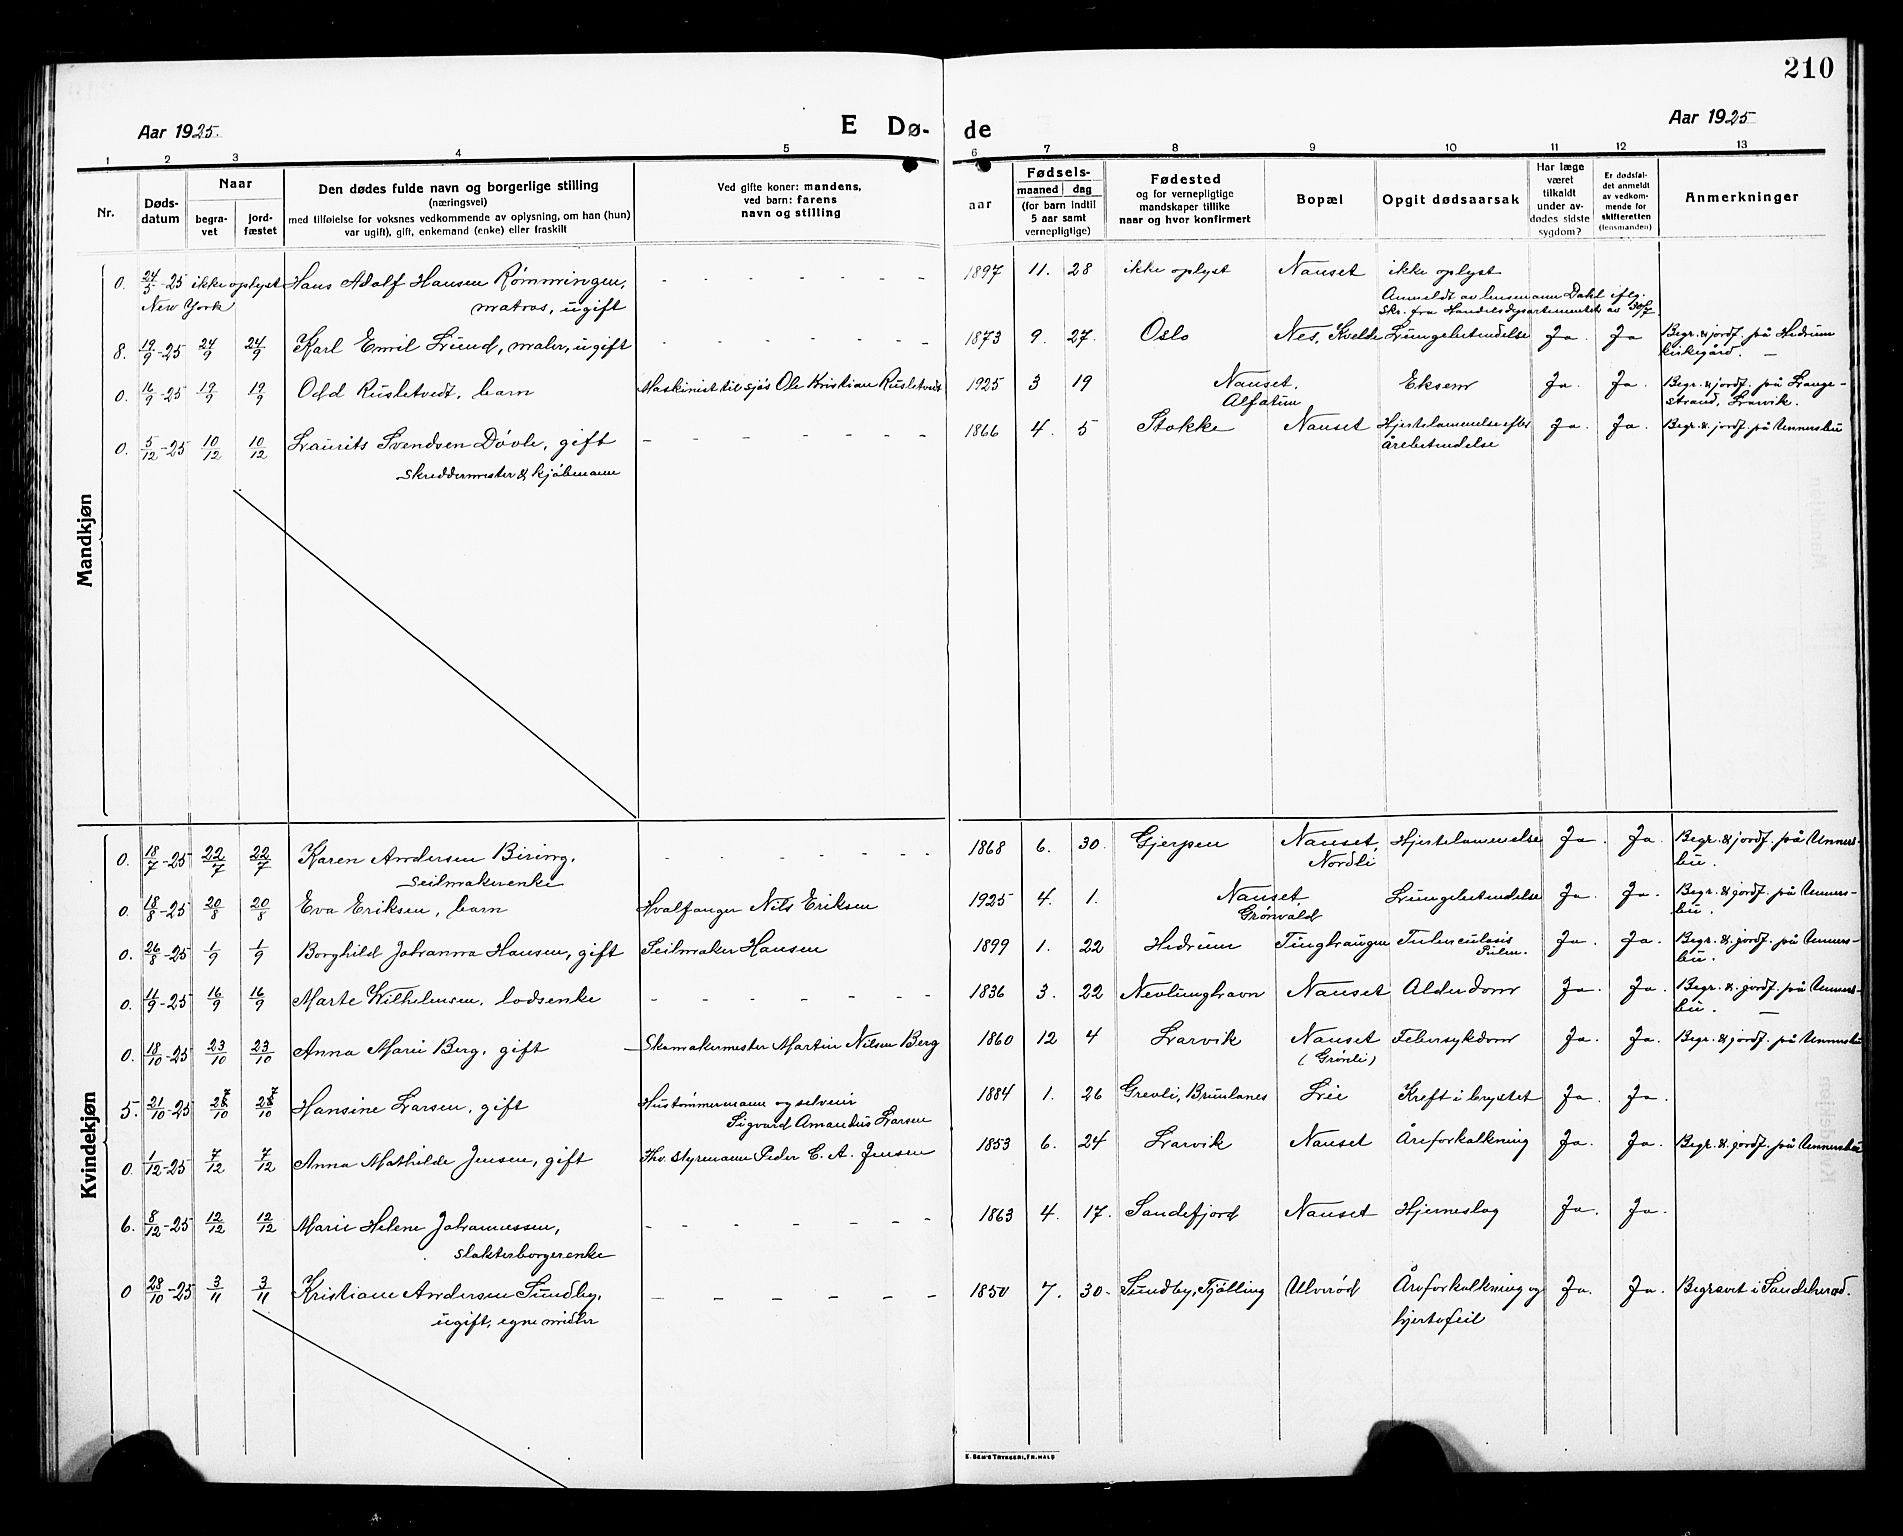 210
Aar 1925.
E Dø-
de
Aar 1925
1 2 3 4 5 6 7 8 9 10 11 12 13
Nr.
Døds-
datum
Naar
begra-
vet
jord-
fæstet
Den dødes fulde navn og borgerlige stilling
(næringsvei)
med tilføielse for voksnes vedkommende av oplysning, om han (hun)
var ugift), gift, enkemand (enke) eller fraskilt
Ved gifte koner: mandens,
ved barn: farens
navn og stilling
aar
Fødsels-
maaned dag
(for barn indtil
5 aar samt
vernepligtige)
Fødested
og for vernepligtige
mandskaper tillike
naar og hvor konfirmert
Bopæl
Opgit dødsaarsak
Har læge
været
tilkaldt
under av-
dødes sidste
sygdom?
Er dødsfal-
det anmeldt
av vedkom-
mende for
skifteretten
(lensmanden)
Anmerkninger
Mandkjøn
0. 24/5-25 ikke oplyst Hans Adolf Hansen Rømmingen, - - - - - - - 1897 11. 28 ikke oplyst Nanset ikke oplyst
New York matros, ugift Anmeldt av lensmann Dahl iflg.
skr. fra Handelsdepartementet av 30/7
8. 19/9-25 24/9 24/9 Karl Emil Lund, maler, ugift - - - - - - - 1873 9. 27. Oslo Nes, Kvelde Lungebetendelse Ja. Ja Begr. & jordf. på Hedrum
kirkegård. —
0. 16/9-25 19/9 19/9 Odd Rusletvedt, barn Maskinist til sjøs Ole Kristian Rusletvedt 1925 3 19 Nanset, Eksem Ja. Ja. Begr. & jordf. på Lange-
Alfatun strand, Larvik.
0. 5/12-25 10/12 10/12 Laurits Svendsen Døvle, gift - - - - - - - 1866 4. 5 Stokke Nanset Hjertelammelse efter Ja. Ja. Begr. & jordf. på Unnersbu
skreddermester & kjøbmann årebetendelse
Kvindekjøn
0. 18/7-25 22/7 22/7 Karen Andersen Bising, - - - - - - - 1868 6. 30. Gjerpen Nanset, Hjertelammelse Ja. Ja. Begr. & jordf. på Unners-
seilmakerenke Nordli bu.
0. 18/8-25 20/8 20/8 Eva Eriksen, barn Hvalfanger Nils Eriksen 1925 4. 1. Nanset, Lungebetendelse Ja. Ja. Begr. & jordf. på Unners-
Grønvald bu.
0. 26/8-25 1/9 1/9 Borghild Johanna Hansen, gift Seilmaker Hansen 1899 1. 22 Hedrum Tinghaugen Tuberculosis Ja. Ja. Begr. & jordf. på Unners-
Pulm. bu.
0. 11/9-25 16/9 16/9 Marte Wilhelmsen, losenke - - - - - - - 1836 3. 22 Nevlunghavn Nanset Alderdom Ja. Ja. Begr. & jordf. på Unners-
bu. —
0. 18/10-25 23/10 23/10 Anna Marie Berg, gift Skomakermester Martin Nilsen Berg 1860 12 4 Larvik Nanset Febersykdom Ja. Ja. Begr. & jordf. på Unnersbu
(Grønli)
5. 21/10-25 27/10 27/10 Hansine Larsen, gift Hustømmermann og selveier 1884 1. 26 Grevli, Brunlanes Lie Kreft i brystet Ja. Ja.
Sigvard Amandus Larsen
0. 1/12-25 7/12 7/12 Anna Mathilde Jensen, gift Fhv. styrmann Peder C. A. Jensen 1853 6. 24 Larvik Nanset Åreforkalkning Ja. Ja. Begr. & jordf. på Unnersbu
6. 8/12-25 12/12 12/12 Marie Helene Johannessen, - - - - - - - 1863 4. 17. Sandefjord Nanset Hjerneslag Ja. Ja.
slakterborgerenke
0 28/10-25 3/11 3/11 Kristiane Andersen Sundby, - - - - - - - 1850 7. 30- Sundby, Tjølling Ulverød Åreforkalkning og Ja. Ja. Begravet i Sandeherad.
ugift, egne midler hjertefeil
E. SEM'S TRYKKERI, FR.HALD